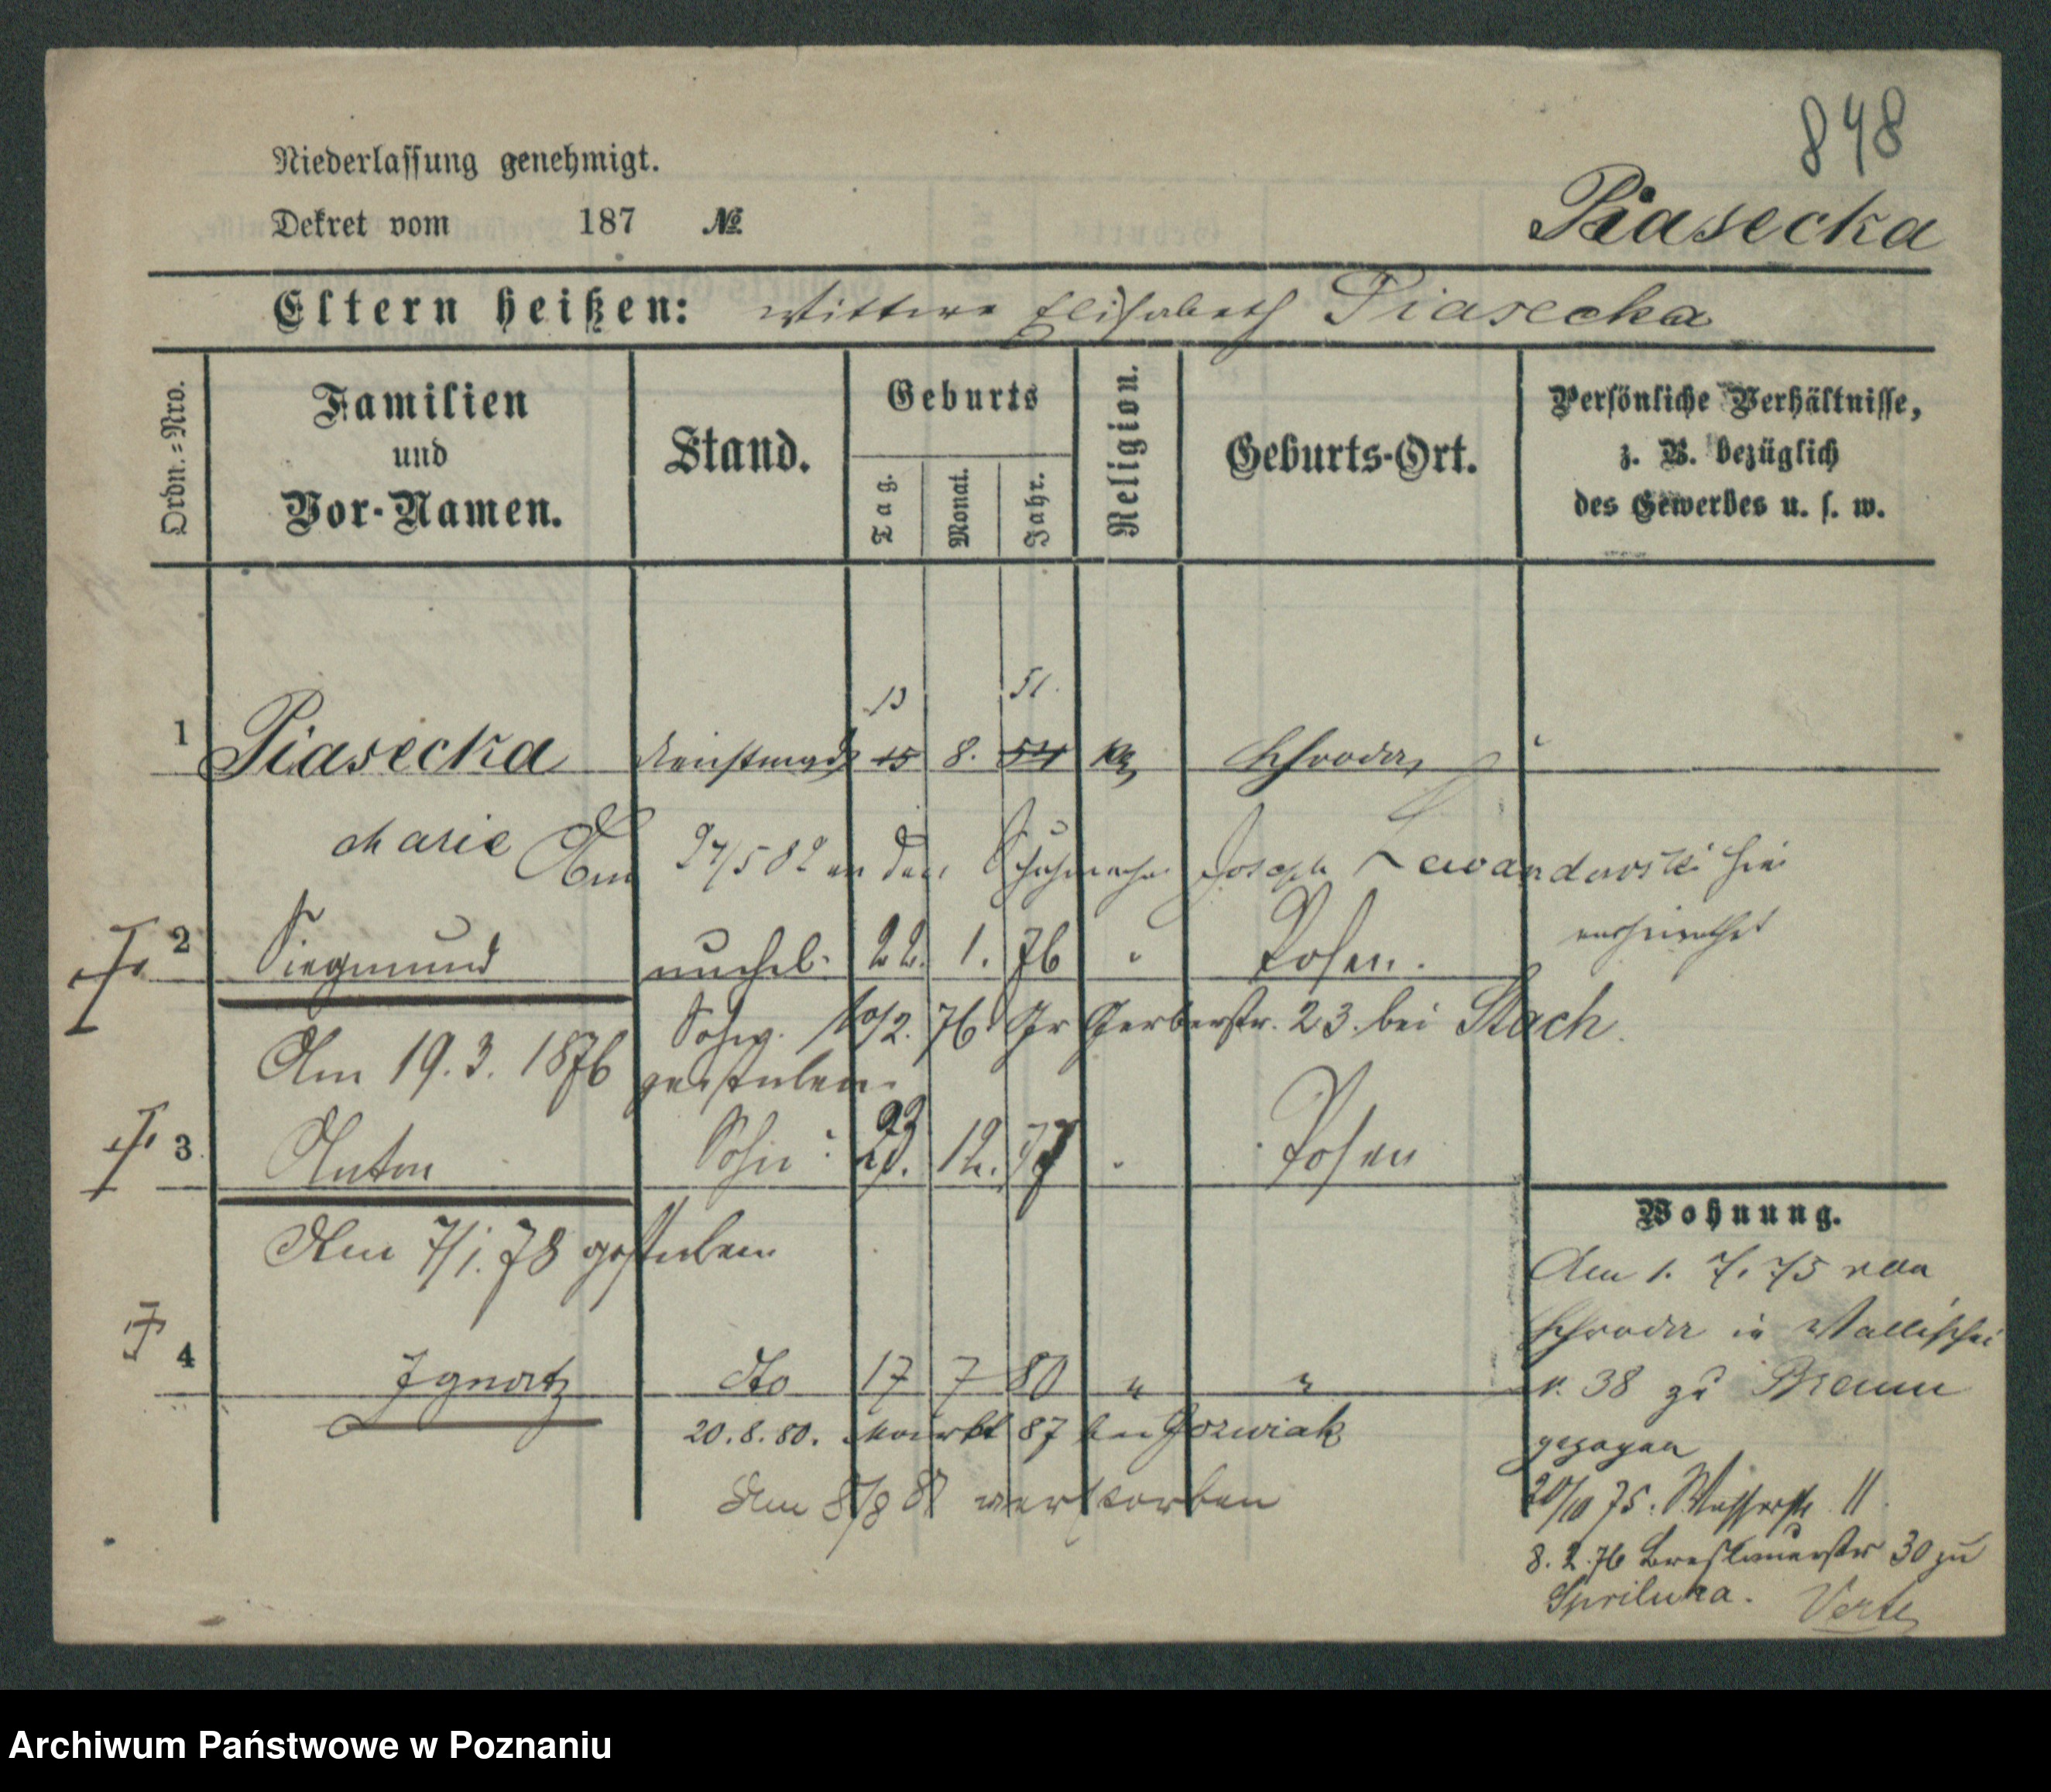 848
Niederlassung genehmigt.
Dekret vom 187 №
Piasecka
Eltern heißen: Wittwe Elisabeth Piasecka
Ordn.=Nro.
Familien und Vor-Namen.
Stand.
Geburts
Tag.
Monat.
Jahr.
Religion.
Geburts-Ort.
Persönliche Verhältnisse,
z. B. bezüglich
des Gewerbes u. s. w.
13 51.
1 Piasecka Dienstmagd 15 8. 54 Schroda
Marie Am 27/5 82 an den Schuhmacher Joseph Lewandowski hier
verheirathet
2 Siegmund unehel. 22. 1. 76 " Posen.
Sohn. 10/2. 76. Gr Gerberstr. 23. bei Stach.
Am 19. 3. 1876 gestorben.
23
3 Anton Sohn 12. 77 " Posen
Am 7/1. 78 gestorben
4 Ignatz dto 17 7 80 " "
20. 8. 80. Markt 87 bei Jozwiak
Am 8/8 81 verstorben
Wohnung.
Am 1. 7. 75 von
Schroda in Wallischei
N. 38 zu Braun
gezogen
20/10 75. Wasserstr. 11.
8. 2. 76 Breslauerstr 30 zu
Spriluka. Verte
Archiwum Państwowe w Poznaniu